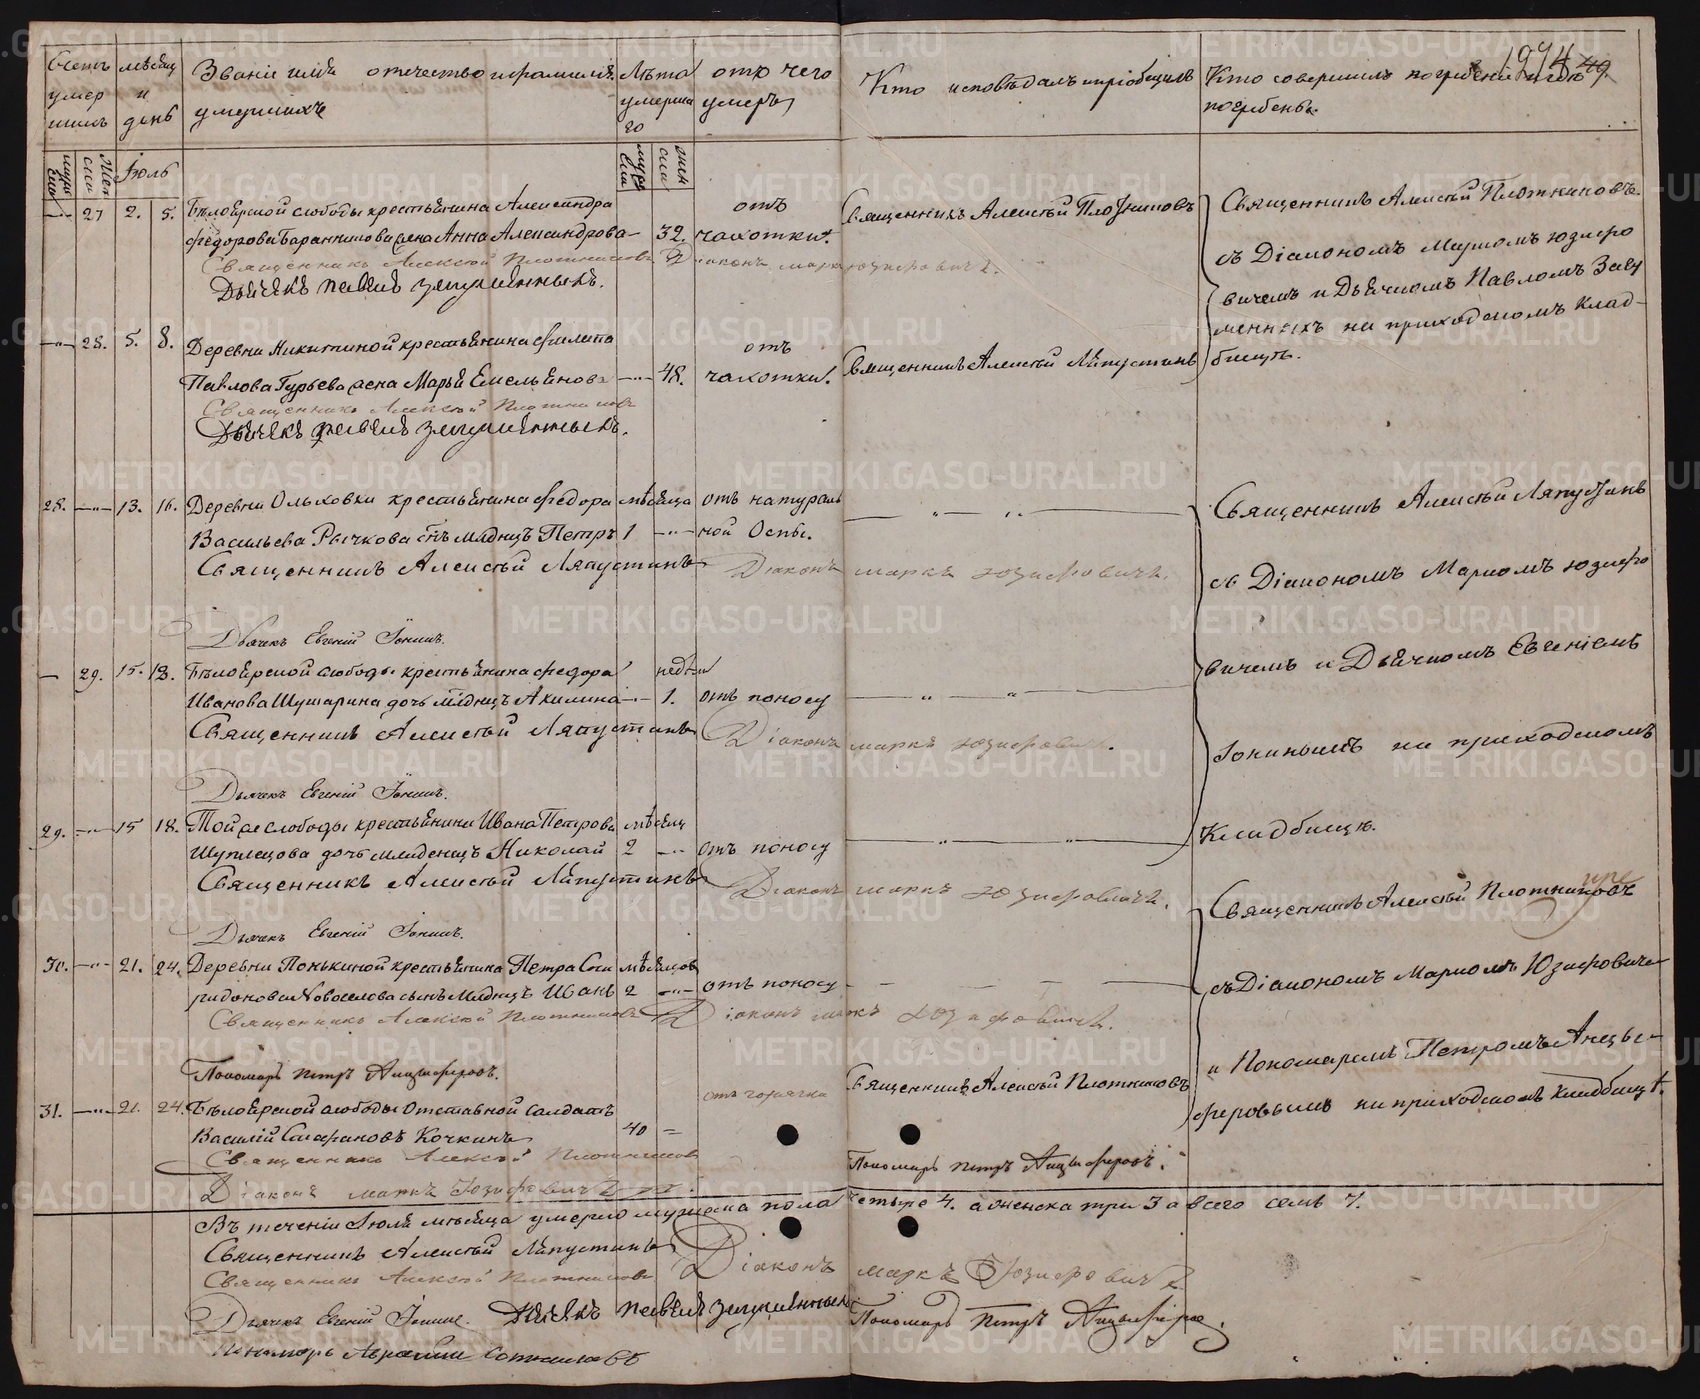 Счетъ умершихъ
мѣсяц и день
Званіе имя отечество и фамилія умершихъ
Лѣта умершаго
отъ чего умеръ
Кто исповѣдалъ и пріобщилъ
Кто совершилъ погребеніе и гдѣ погребены.
Іюль
27 2. 5. Бѣлоярской слободы крестьянина Александра
Федорова Баранникова жена Анна Александрова 32.
отъ чахотки.
Священникъ Алексѣй Плотниковъ
Священникъ Алексѣй Плотниковъ Діаконъ Маркъ Юзифовичъ.
Дьячекъ Павелъ
Священникъ Алексѣй Плотниковъ
съ Діакономъ Маркомъ Юзифо
вичемъ и Дьячкомъ Павломъ
на приходскомъ клад-
бищѣ.
28. 5. 8. Деревни Никитиной крестьянина Филата
Павлова Гурьева жена Марья Емельянова 48.
отъ чахотки.
Священникъ Алексѣй Ляпустинъ
Священникъ Алексѣй Плотниковъ
Дьячекъ Павелъ
28. 13. 16. Деревни Ольховки крестьянина Федора
Васильева Рычкова сынъ младнцъ Петръ
мѣсяца 1
отъ натураль
ной Оспы.
Священникъ Алексѣй Ляпустинъ Діаконъ Маркъ Юзифовичъ.
Дьячекъ Евгеній Іонинъ.
Священникъ Алексѣй Ляпустинъ
съ Діакономъ Маркомъ Юзифо
вичемъ и Дьячкомъ Евгеніемъ
Іонинымъ на приходскомъ
Кладбищѣ.
29. 15. 18. Бѣлоярской слободы крестьянина Федора
Иванова Шушарина дочь младнцъ Акилина
недѣли 1.
отъ поносу
Священникъ Алексѣй Ляпустинъ Діаконъ Маркъ Юзифовичъ.
Дьячекъ Евгеній Іонинъ.
29. 15 18. Той же слободы крестьянина Ивана Петрова
дочь младенецъ Николай
мѣсяц 2
отъ поносу
Священникъ Алексѣй Ляпустинъ Діаконъ Маркъ Юзифовичъ.
Дьячекъ Евгеній Іонинъ.
30. 21. 24. Деревни Понькиной крестьянина Петра Спи
ридонова Новоселова сынъ младнцъ Иванъ
мѣсяцов 2
отъ поносу
Священникъ Алексѣй Плотниковъ Діаконъ Маркъ Юзифовичъ.
Пономарь Петръ Анцыферовъ.
Священникъ Алексѣй Плотниковъ
съ Діакономъ Маркомъ Юзифовиче
и Пономаремъ Петромъ Анцы-
феровымъ на приходскомъ кладбищѣ.
31. 21. 24. Бѣлоярской слободы Отставной солдатъ
Василій Кочкинъ 40
отъ горячки
Священникъ Алексѣй Плотниковъ
Священникъ Алексѣй Плотниковъ
Діаконъ Маркъ Юзифовичъ
Пономарь Петръ Анцыферовъ.
Въ теченіи Іюля мѣсяца умерло мужеска пола четыре 4. а женска три 3 а всего семь 7.
Священникъ Алексѣй Ляпустинъ Діаконъ Маркъ Юзифовичъ
Священникъ Алексѣй Плотниковъ
Дьячекъ Евгеній Іонинъ. Дьячекъ Павелъ Пономарь Петръ Анцыферов.
Пономарь
METRIKI.GASO-URAL.RU